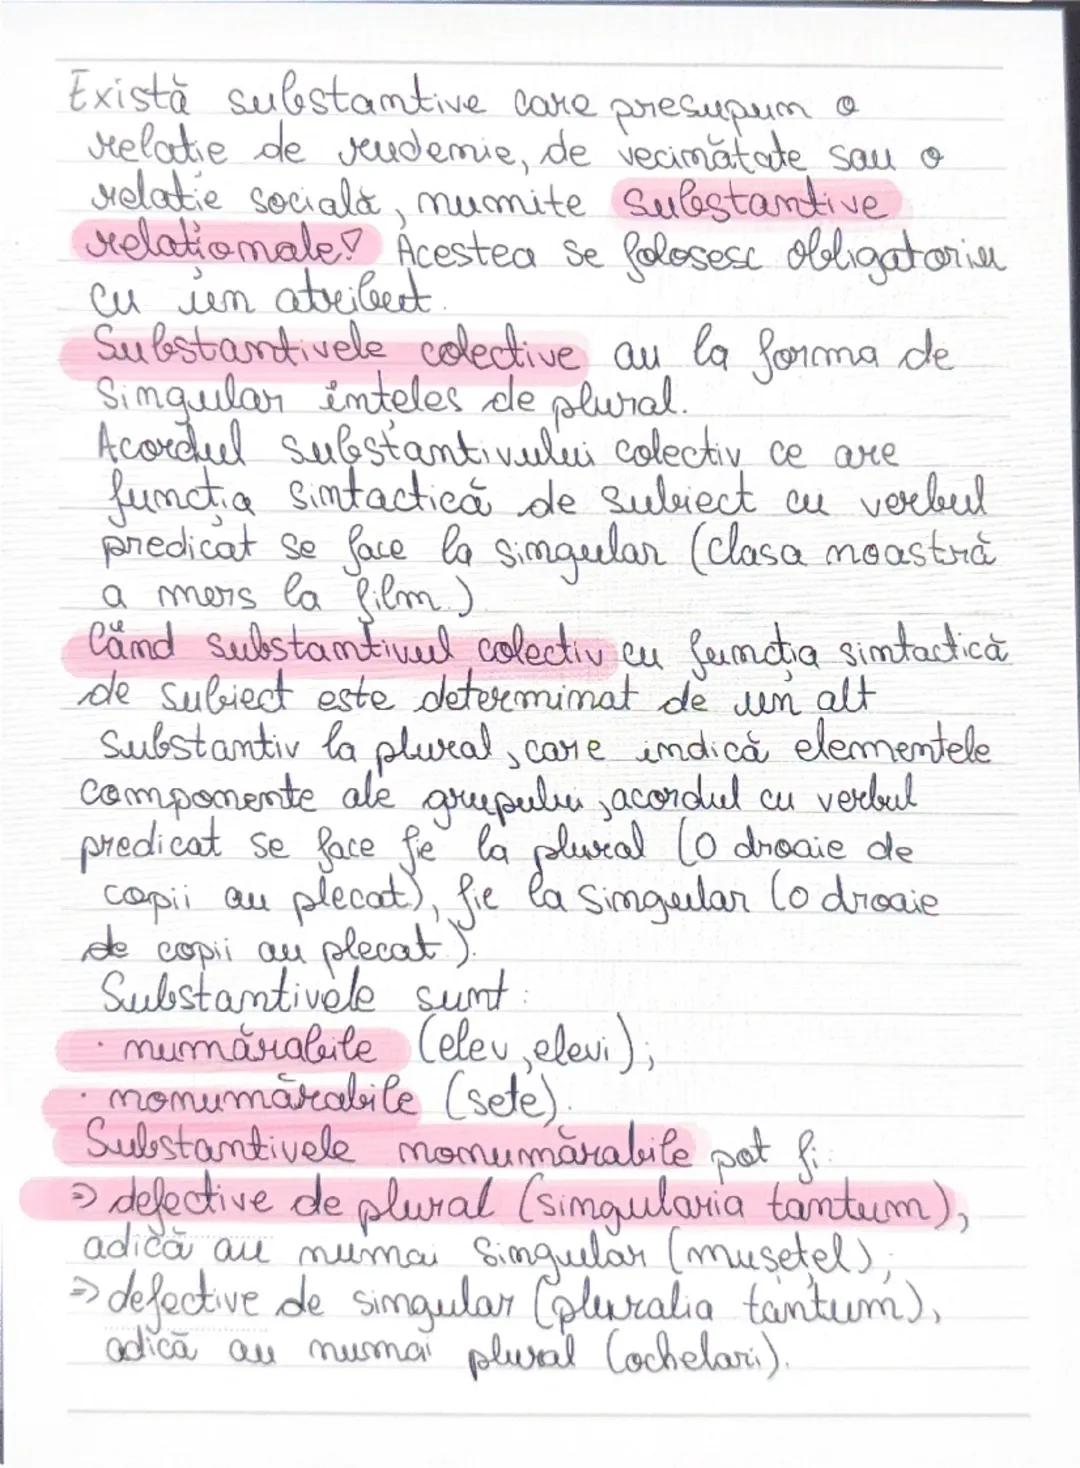 Există substantive care presupun o
relație de rudenie, de vecinătate sau o
relație socială, numite substantive
relaționale! Acestea se folosesc obligatoriu
cu un atribut.
Substantivele colective au la forma de
singular înțeles de plural.
Acordul substantivului colectiv ce are
funcția sintactică de subiect cu verbul
predicat se face la singular (Clasa noastră
a mers la film.)
Când substantivul colectiv cu funcția sintactică
de subiect este determinat de un alt
substantiv la plural, care indică elementele
componente ale grupului, acordul cu verbul
predicat se face fie la plural (O droaie de
copii au plecat), fie la singular (O droaie
de copii au plecat).
Substantivele sunt:
· numărabile (elev, elevi);
· nonumărabile (sete).
Substantivele nonumărabile pot fi:
⇒ defective de plural (singularia tantum),
adică au numai singular (mușețel);
⇒ defective de singular (pluralia tantum),
adică au numai plural (ochelari).